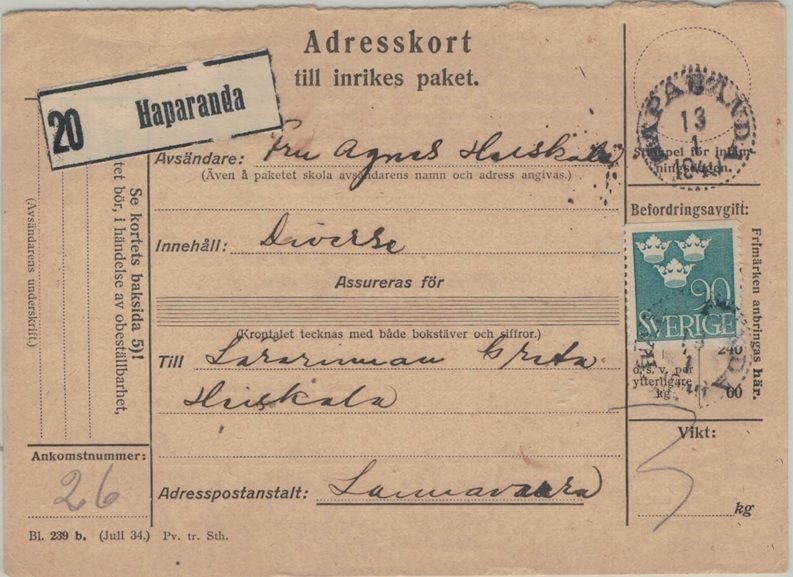 Adresskort
till inrikes paket.
20 Haparanda
HAPARANDA
13
1
194
Stämpel för inläm-
ningsdagen.
Avsändare: Fru Agnes Huiskala
(Även å paketet skola avsändarens namn och adress angivas.)
Befordringsavgift:
Innehåll: Diverse
Assureras för
(Krontalet tecknas med både bokstäver och siffror.)
90
SVERIGE
Frimärken anbringas här.
7 240
o. s. v. per
ytterligare
kg 60
Till Lärarinnan Greta
Huiskala
Adresspostanstalt: Lannavaara
Vikt:
5
kg
Se kortets baksida 5)!
tet bör, i händelse av obeställbarhet,
(Avsändarens underskrift.)
Ankomstnummer:
26
Bl. 239 b. (Juli 34.) Pv. tr. Sth.